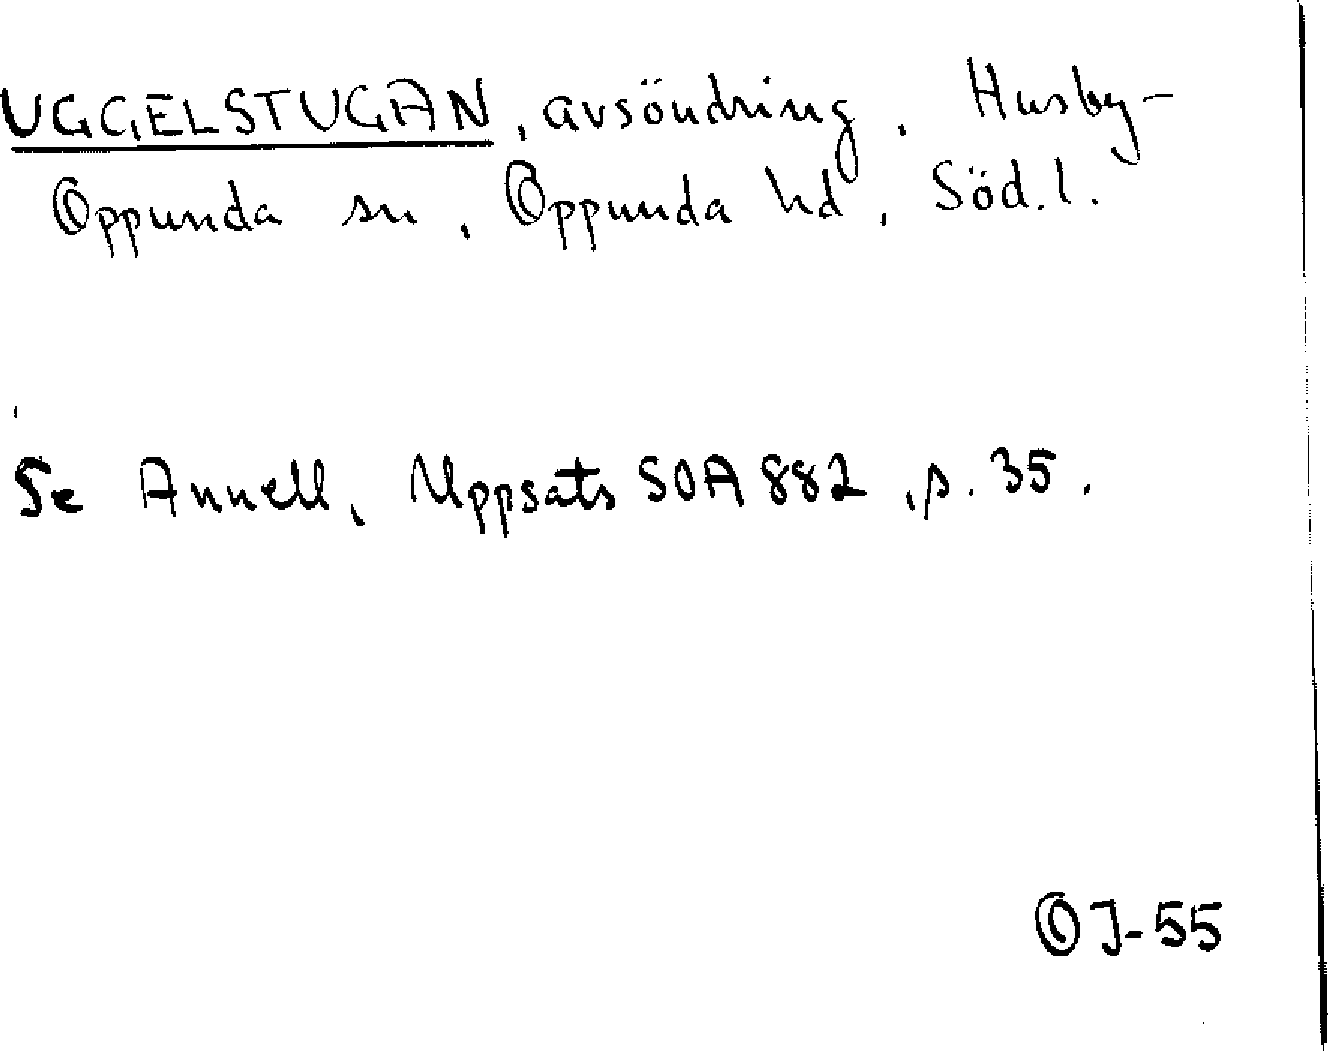 UGGELSTUGAN, avsöndring, Husby-
Oppunda sn, Oppunda hd, Söd.l.
Se Annell, Uppsats SOA 882, s. 35.
OJ-55